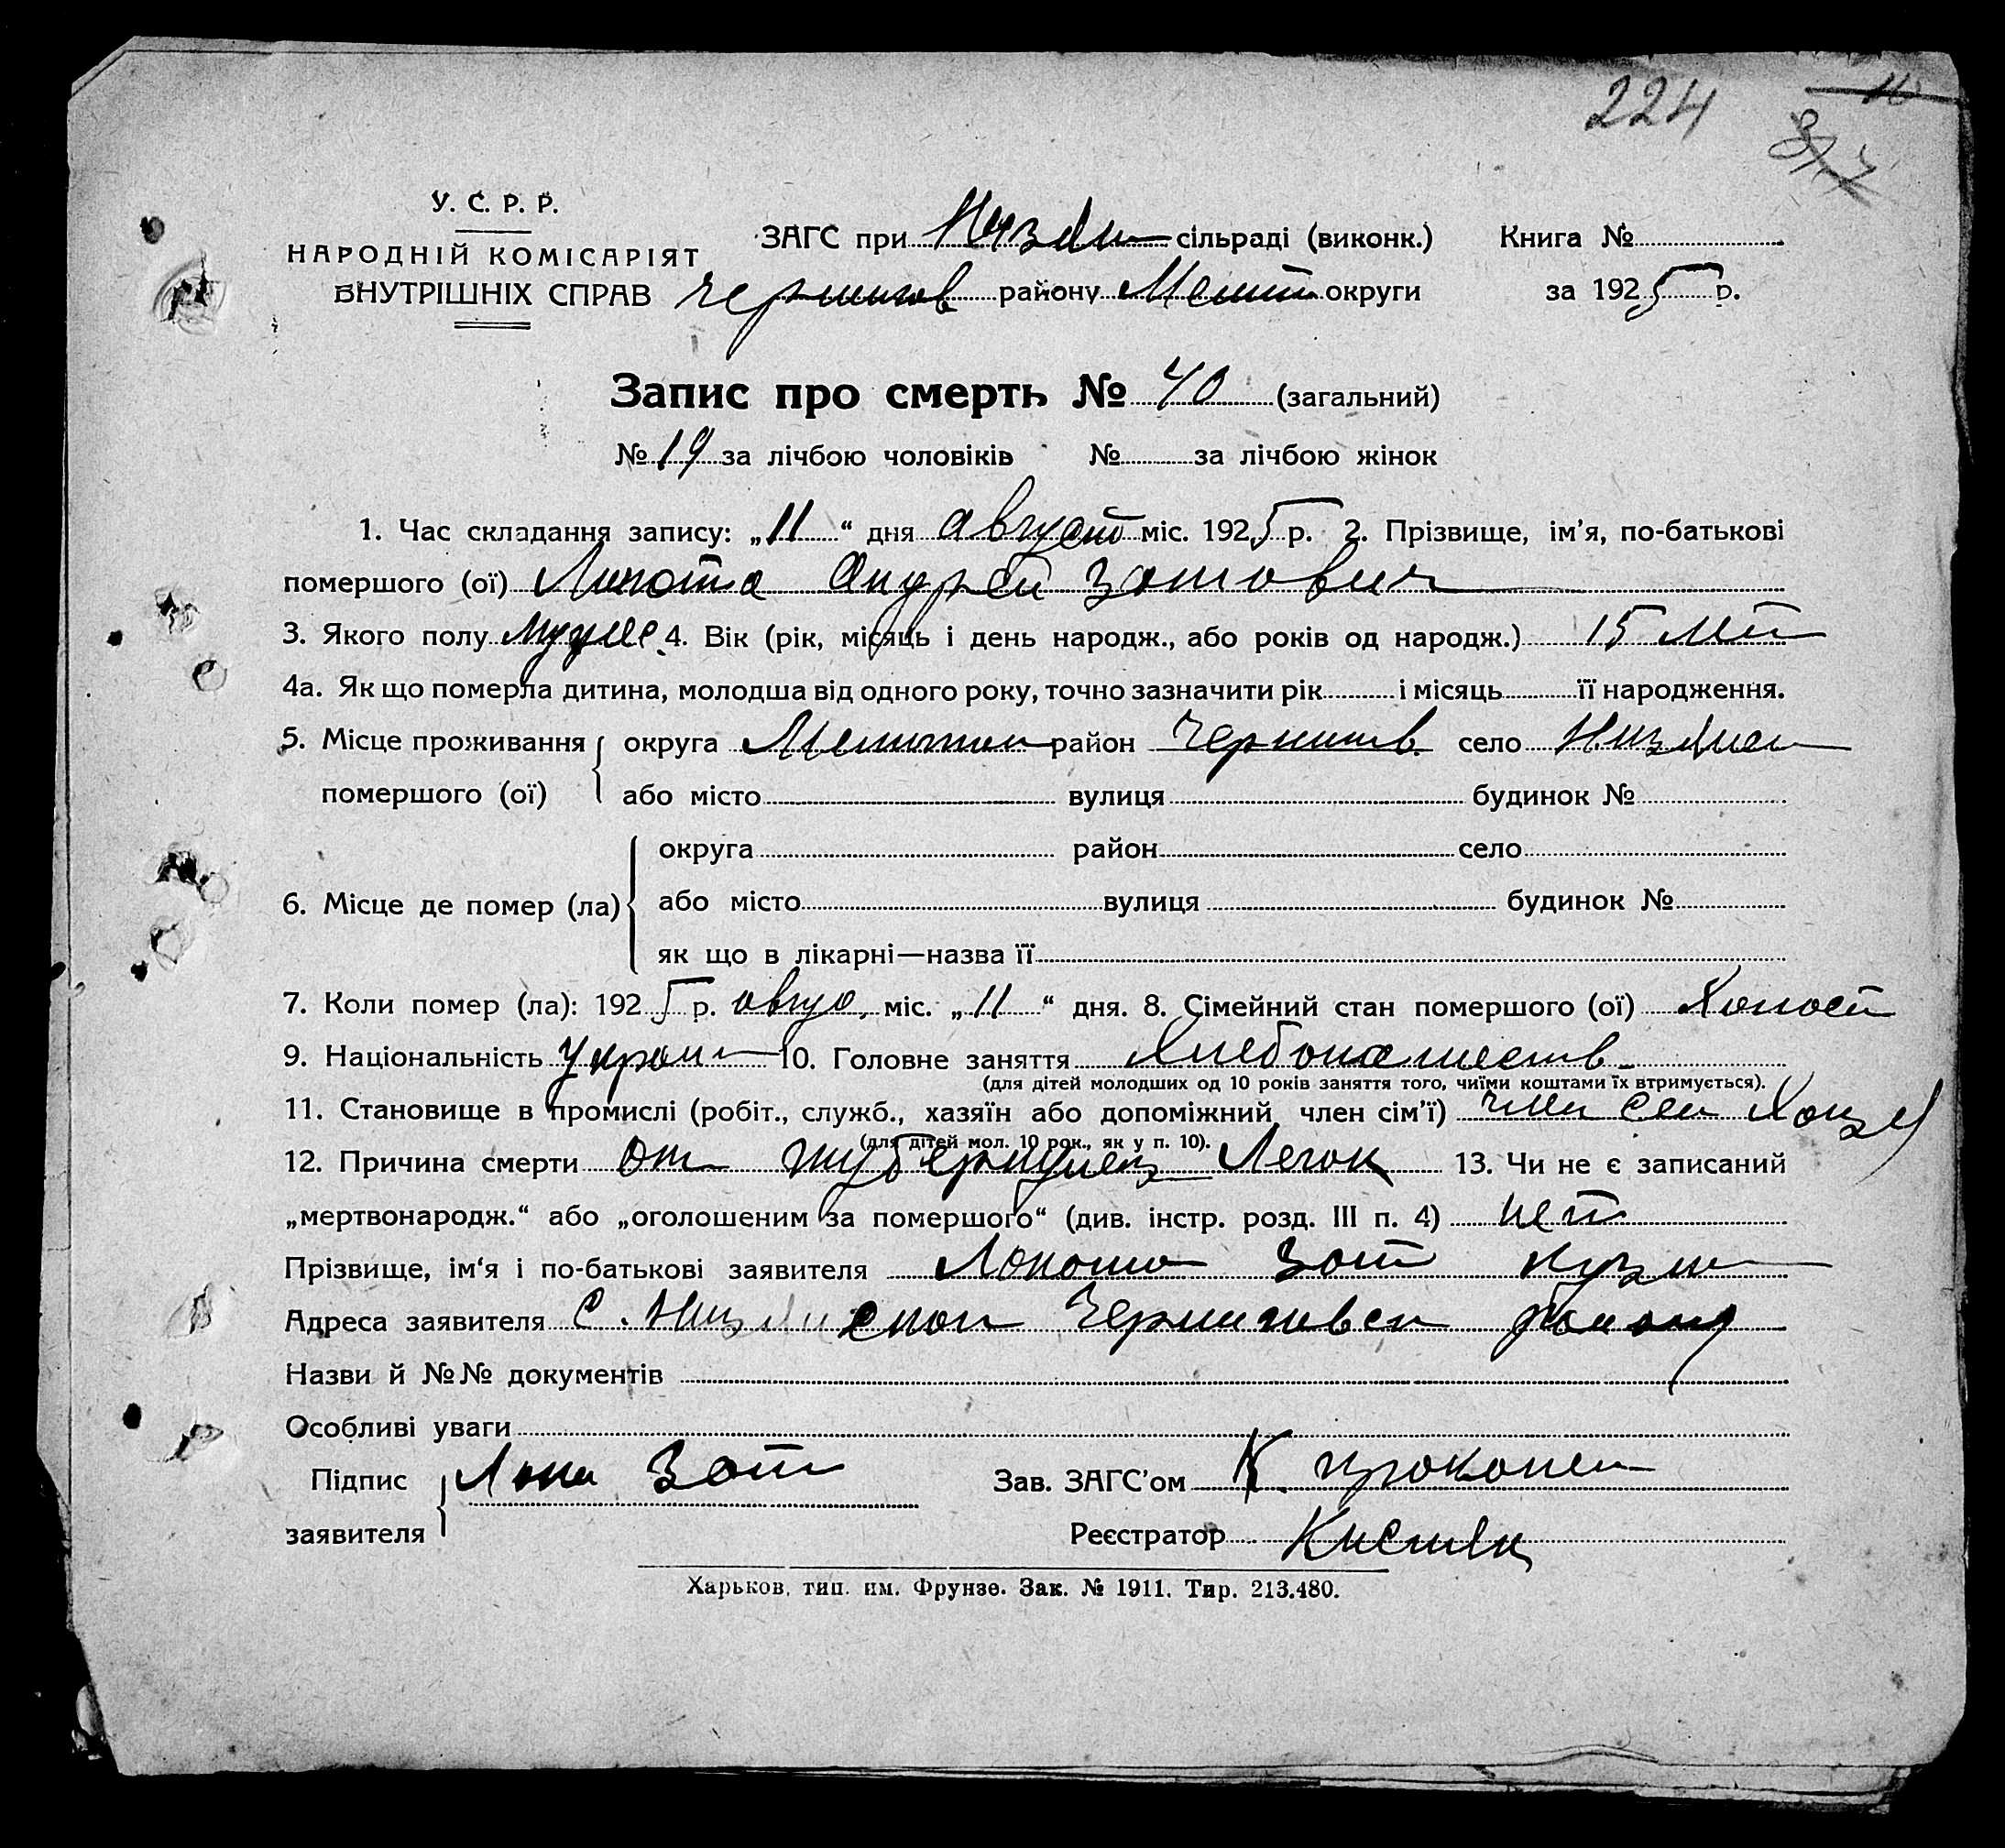 224
У. С. Р. Р.
НАРОДНІЙ КОМІСАРІЯТ
ВНУТРІШНІХ СПРАВ
ЗАГС при сільраді (виконк.) Книга №
Чернигов району Мелит округи за 1925 р.
Запис про смерть № 40 (загальний)
№ 19 за лічбою чоловіків № за лічбою жінок
1. Час складання запису: „11“ дня август міс. 1925 р. 2. Прізвище, ім’я, по-батькові
помершого (ої) Андрей Зотович
3. Якого полу 4. Вік (рік, місяць і день народж., або років од народж.) 15 лет
4а. Як що померла дитина, молодша від одного року, точно зазначити рік і місяць її народження.
5. Місце проживання округа район Чернигов. село
помершого (ої) або місто вулиця будинок №
округа район село
6. Місце де помер (ла) або місто вулиця будинок №
як що в лікарні—назва її
7. Коли помер (ла): 1925 р. авгус. міс. „11“ дня. 8. Сімейний стан помершого (ої) Холост
9. Національність Украин 10. Головне заняття Хлебопашеств
(для дітей молодших од 10 років заняття того, чиїми коштами їх втримується).
11. Становище в промислі (робіт., служб., хазяїн або допоміжний член сім’ї) член сем
(для дітей мол. 10 рок., як у п. 10).
12. Причина смерти от туберкулез Легок 13. Чи не є записаний
„мертвонародж.“ або „оголошеним за помершого“ (див. інстр. розд. III п. 4) нет
Прізвище, ім‘я і по-батькові заявителя Зот Кузм
Адреса заявителя с. Черниговск району
Назви й №№ документів
Особливі уваги
Підпис Зот Зав. ЗАГС’ом К. Прокопен
заявителя Реєстратор
Харьков, тип. им. Фрунзе. Зак. № 1911. Тир. 213.480.